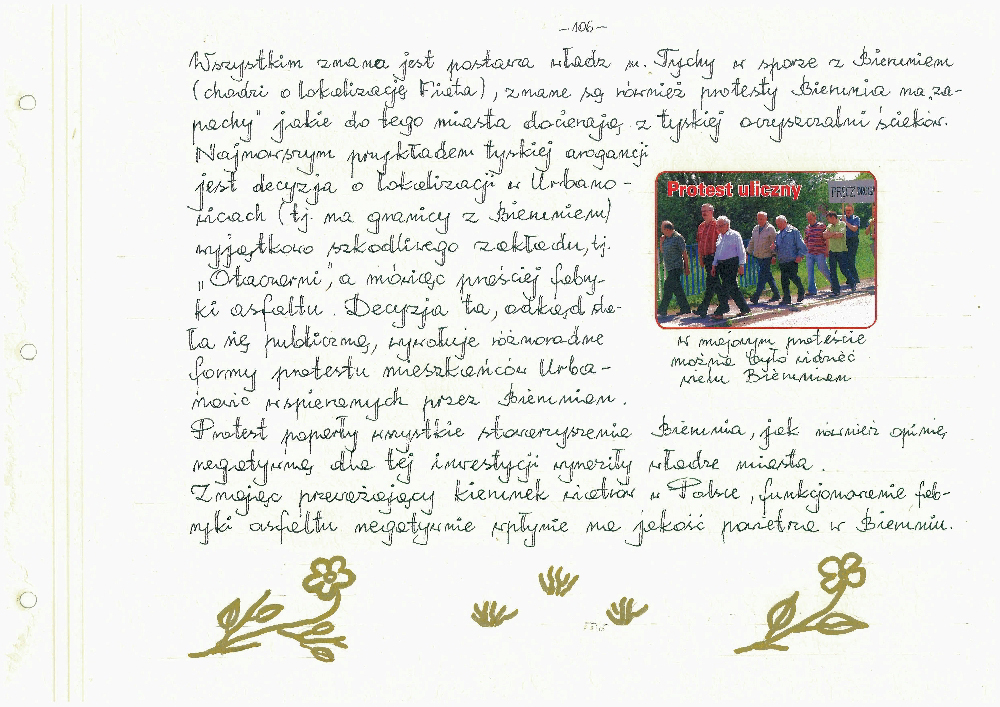 -106-
Wszystkim znana jest postawa władz m. Tychy w sporze z Bieruniem
(chodzi o lokalizację Fiata), znane są również protesty Bierunia na "za-
pachy" jakie do tego miasta docierają z tyskiej oczyszczalni ścieków.
Najnowszym przykładem tyskiej arogancji
jest decyzja o lokalizacji w Urbano-
wicach (tj. na granicy z Bieruniem)
wyjątkowo szkodliwego zakładu, tj.
„Otaczarni", a mówiąc prościej fabry-
ki asfaltu. Decyzja ta, odkąd sta-
ła się publiczną, wywołuje różnorodne
formy protestu mieszkańców Urba-
nowic wspieranych przez Bierunian.
Protest poparły wszystkie stowarzyszenia Bierunia, jak również opinię
negatywną dla tej inwestycji wyraziły władze miasta.
Znając przeważający kierunek wiatrów w Polsce, funkcjonowanie fab-
ryki asfaltu negatywnie wpłynie na jakość powietrza w Bieruniu.
Protest uliczny
w majowym proteście
można było widzieć
wielu Bierunian